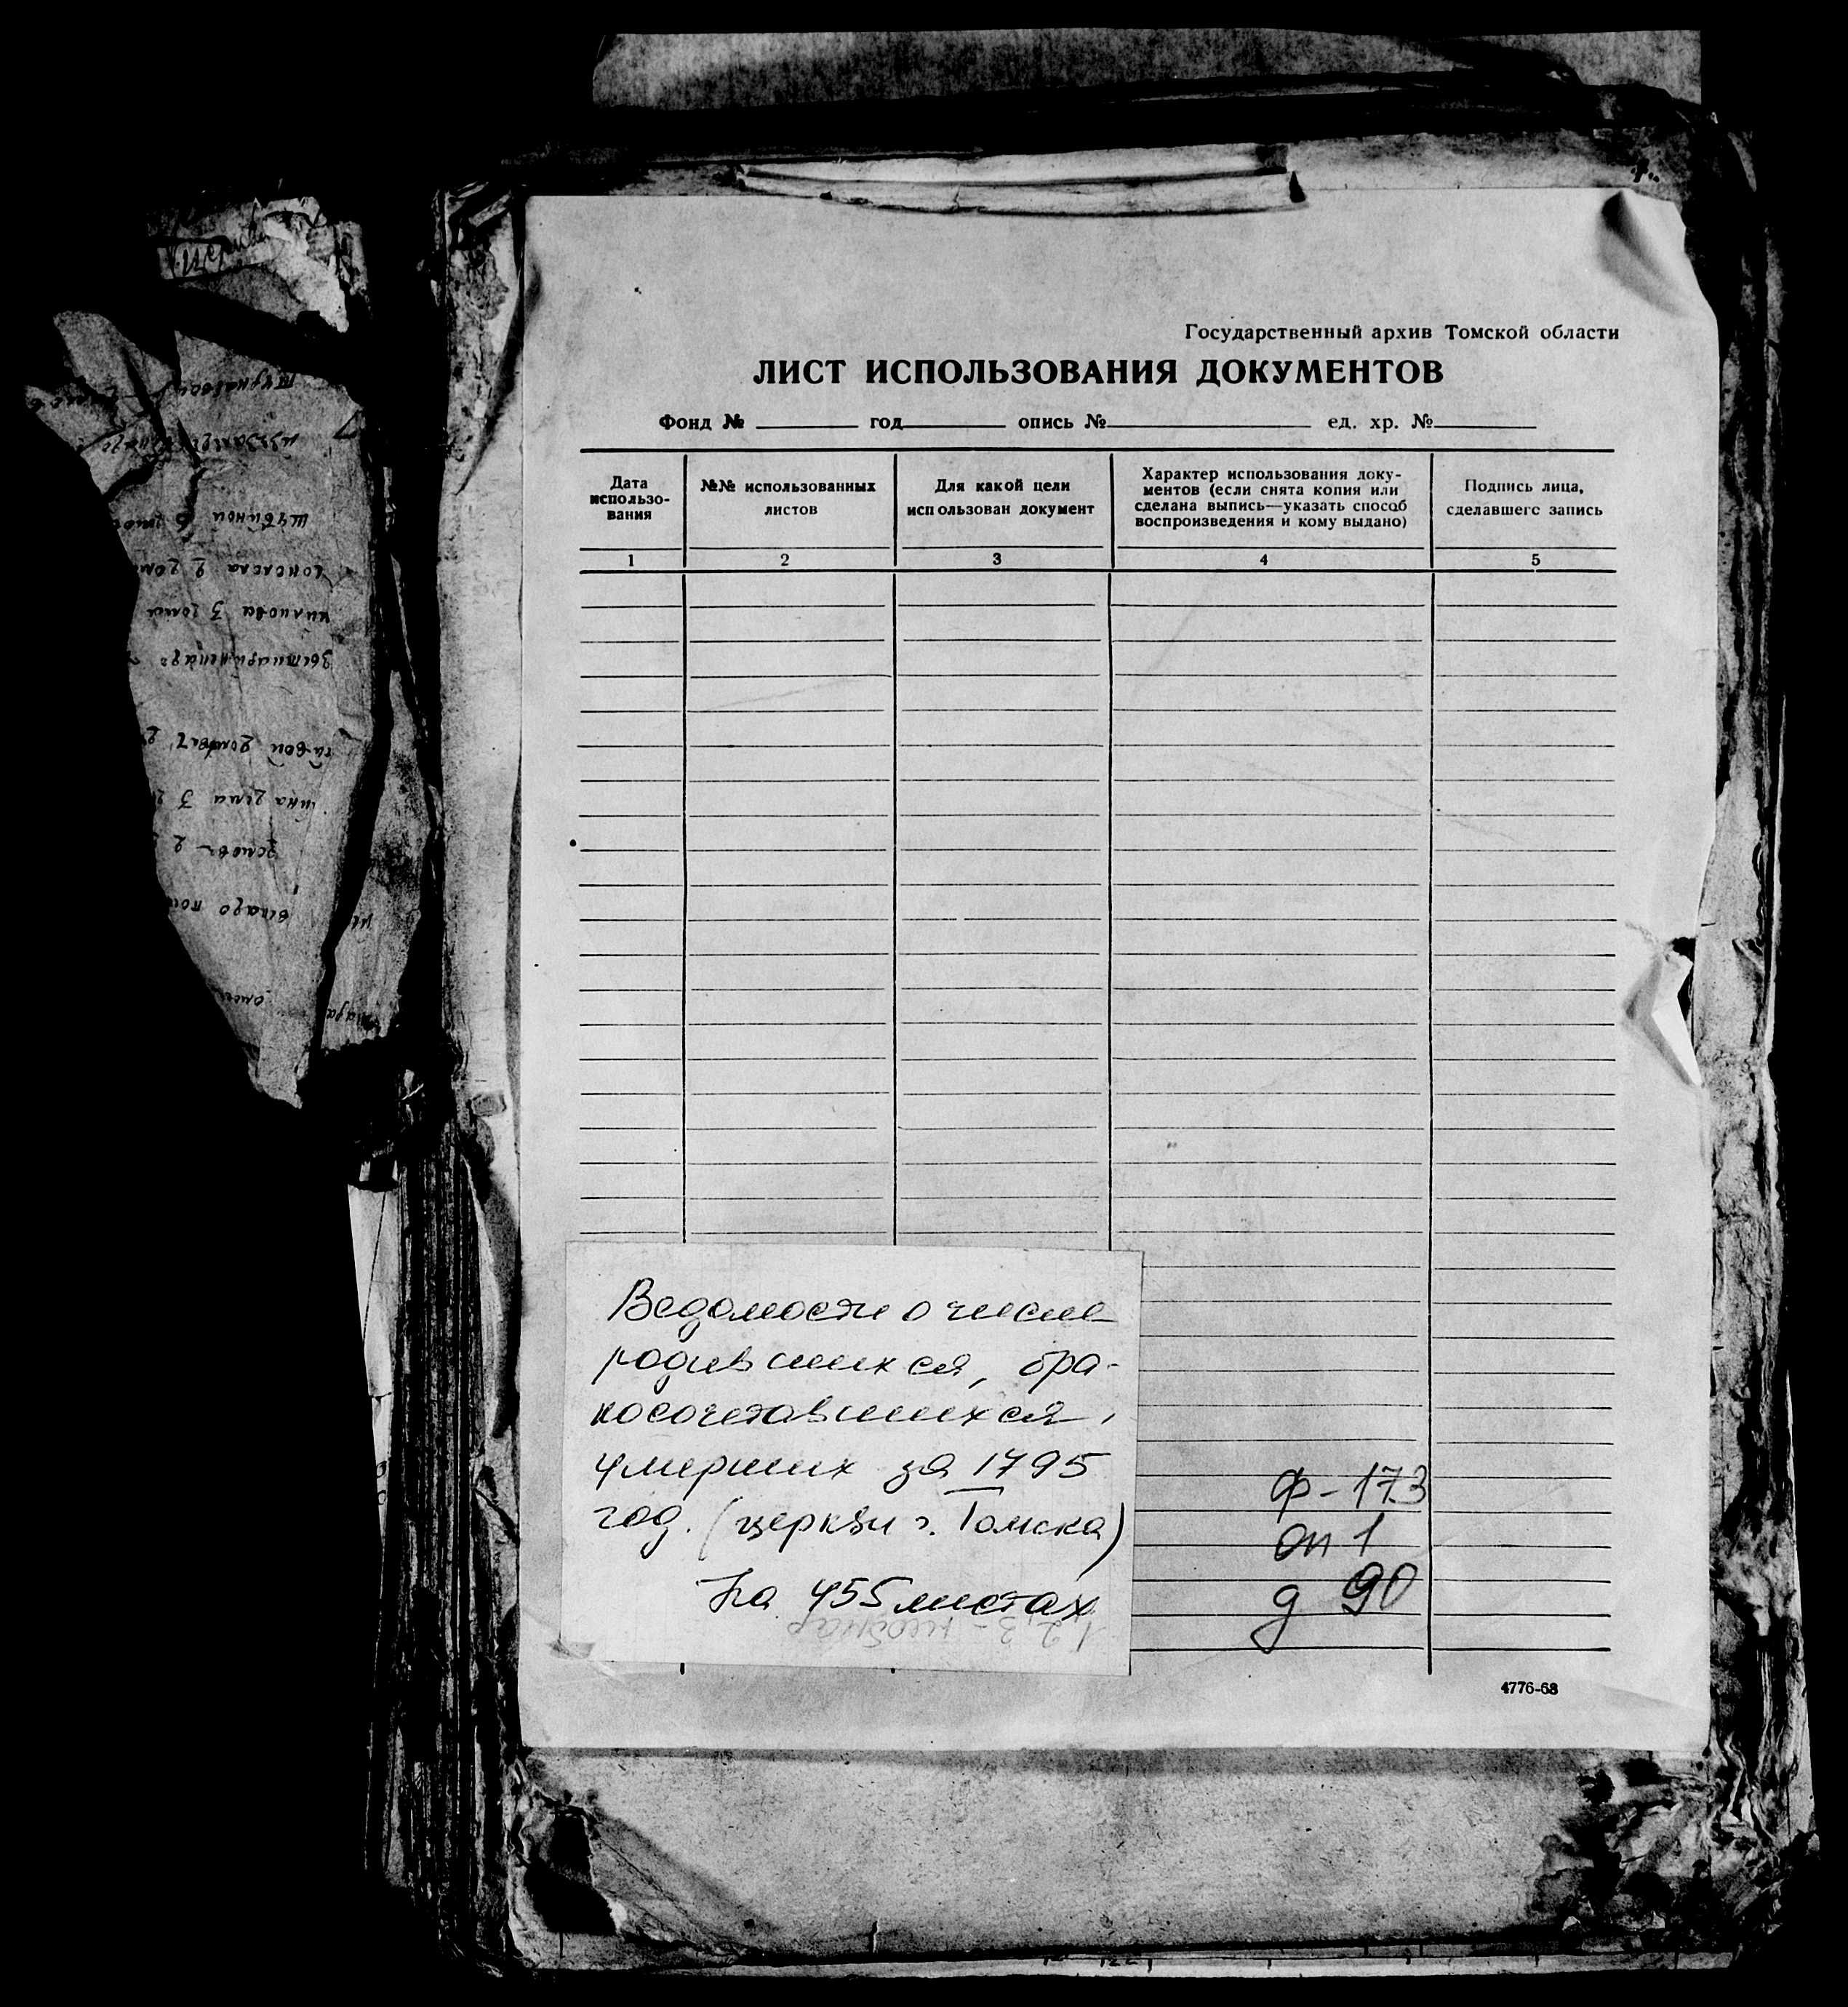 Государственный архив Томской области
ЛИСТ ИСПОЛЬЗОВАНИЯ ДОКУМЕНТОВ
Фонд № год опись № ед. хр. №
Дата использо-вания
№№ использованных листов
Для какой цели использован документ
Характер использования доку-
ментов (если снята копия или
сделана выпись—указать способ
воспроизведения и кому выдано)
Подпись лица,
сделавшего запись
1 2 3 4 5
Ведомости о числе
родившихся, бра-
косочетавшихся,
умерших за 1795
год. (церкви г. Томска)
На 455 листах
ф-173
оп 1
д 90
4776-68